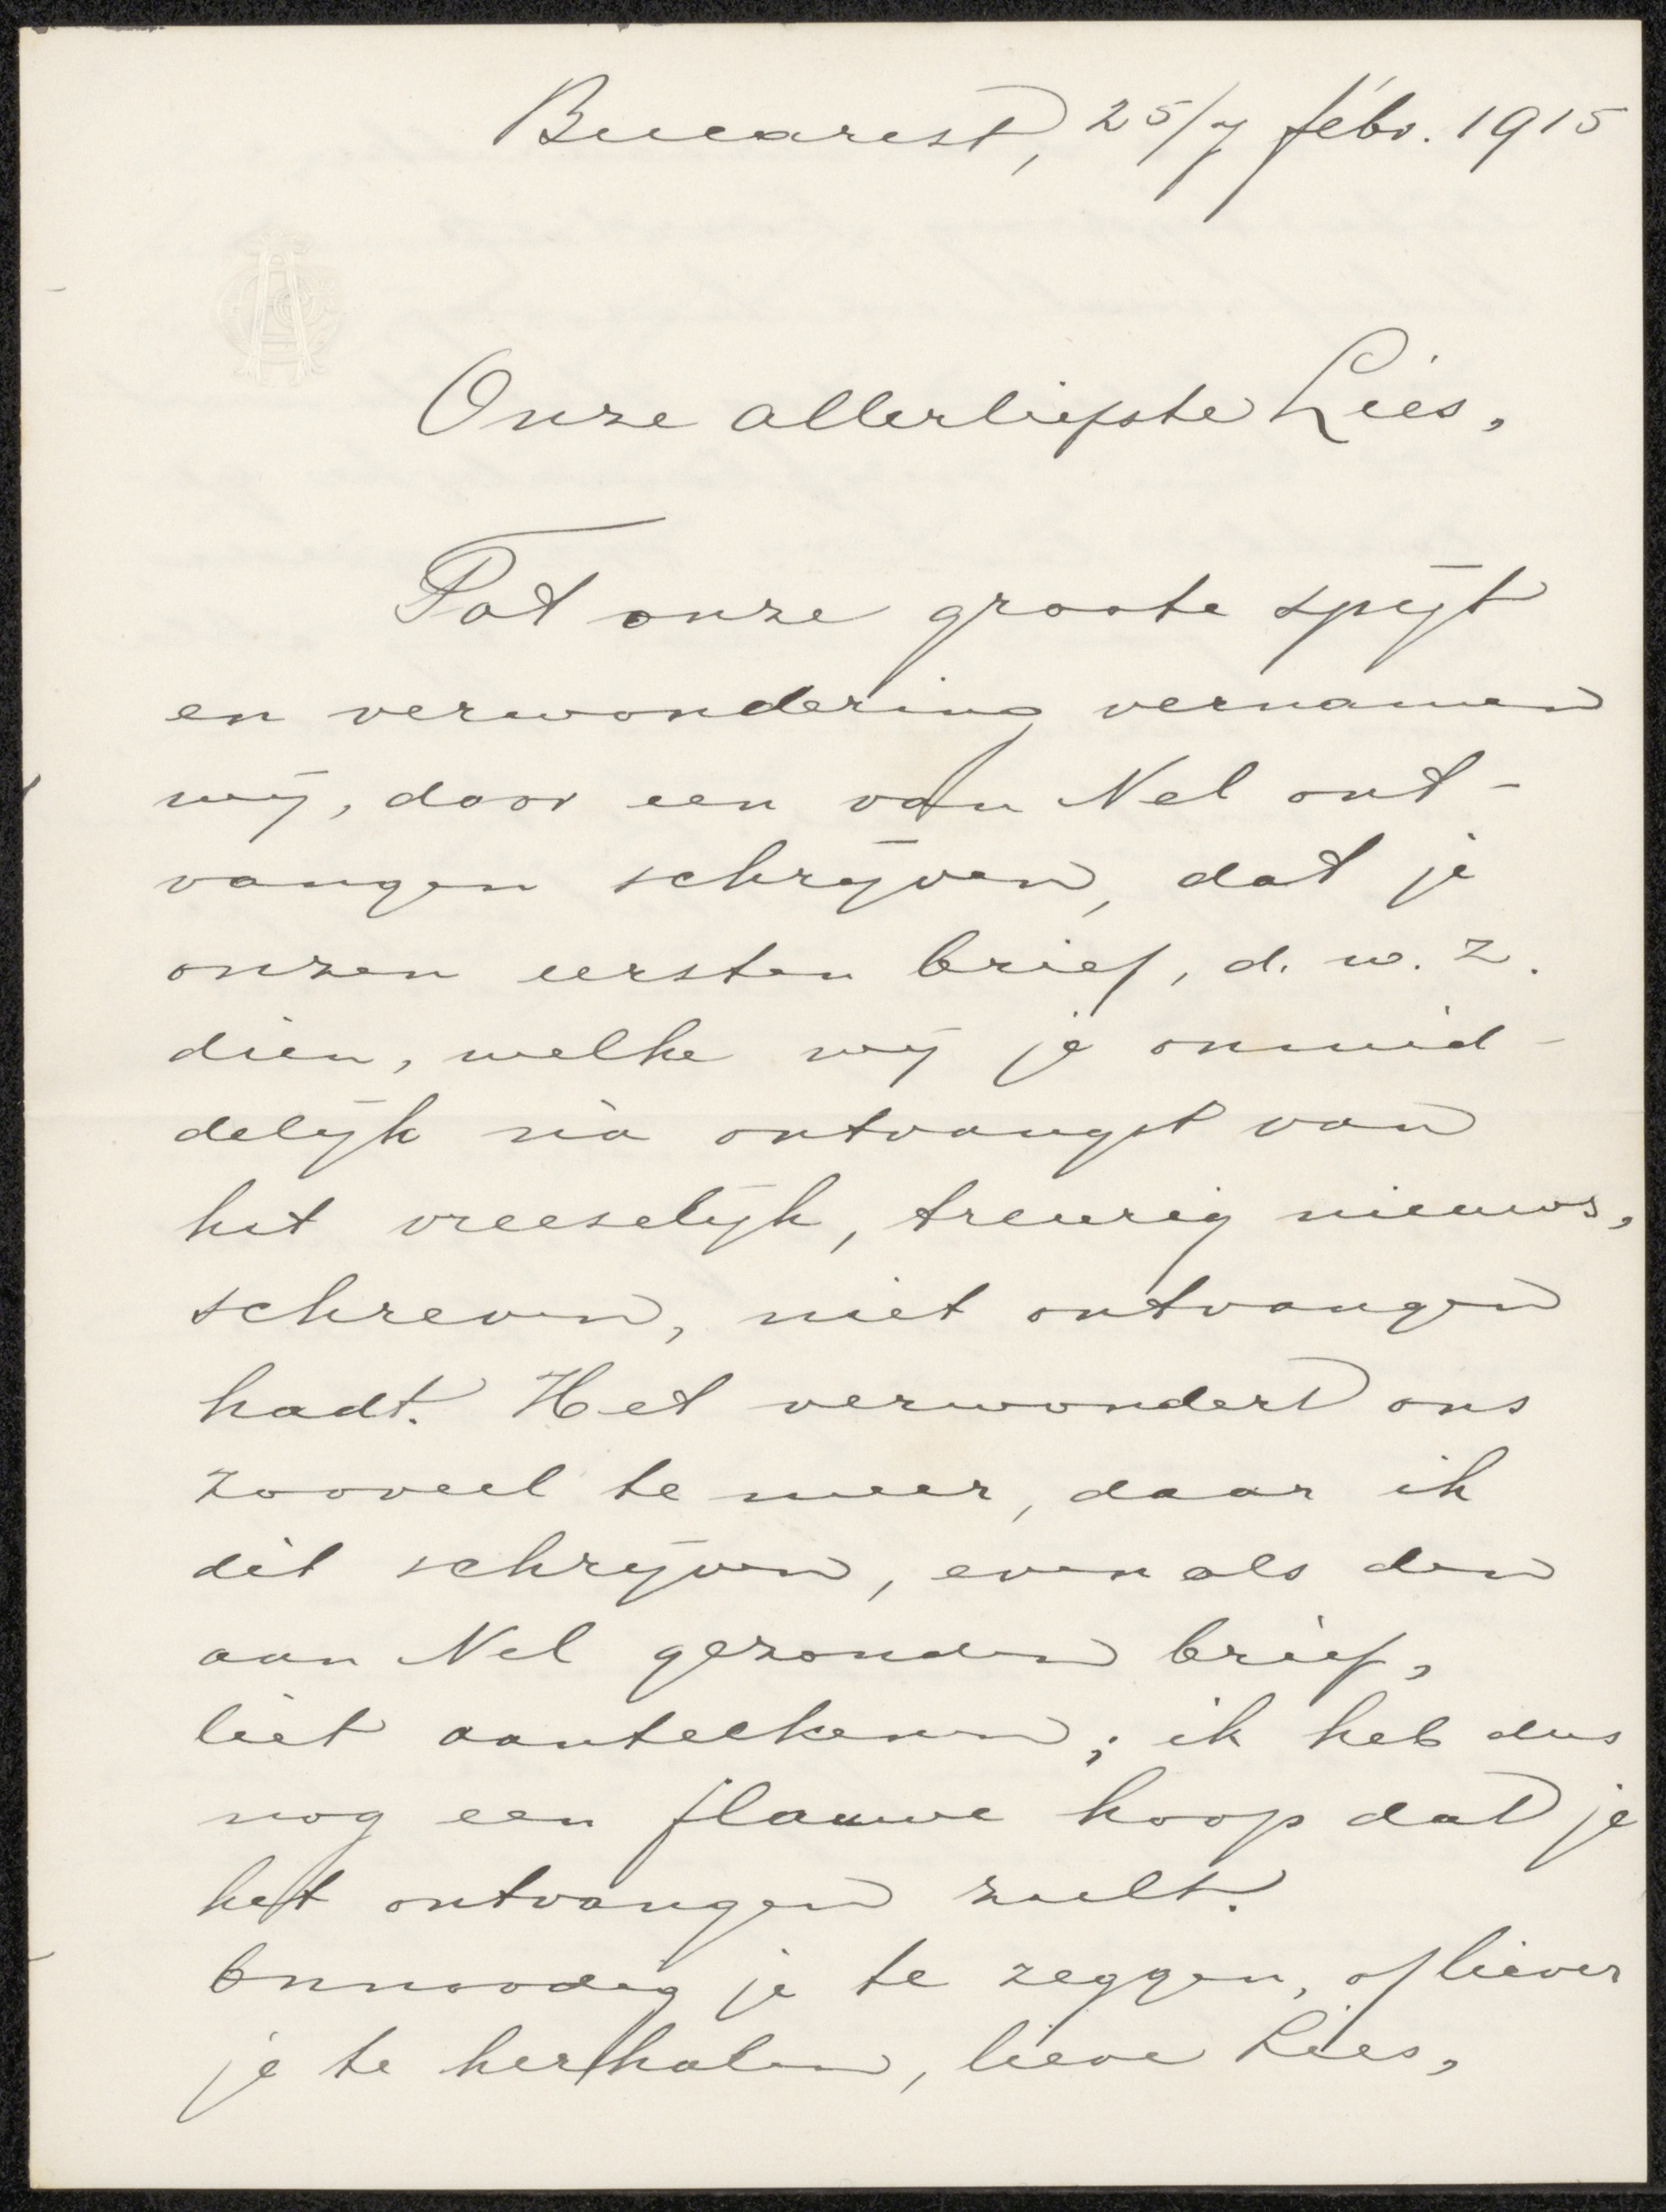 Bucarest, 25/7 febr. 1915
Onze allerliefste Lies,
Tot onze groote spijt
en verwondering vernamen
wij, door een van Nel ont-
vangen schrijven, dat je
onzen eersten brief, d. w. z.
dien, welke wij je onmid-
delijk nà ontvangst van
het vreeselijk, treurig nieuws,
schreven, niet ontvangen
hadt. Het verwondert ons
zooveel te meer, daar ik
dit schrijven, evenals den
aan Nel gezonden brief,
liet aanteekenen; ik heb dus
nog een flauwe hoop dat je
het ontvangen zult.
Onnoodig je te zeggen, of liever
je te herhalen, lieve Lies,